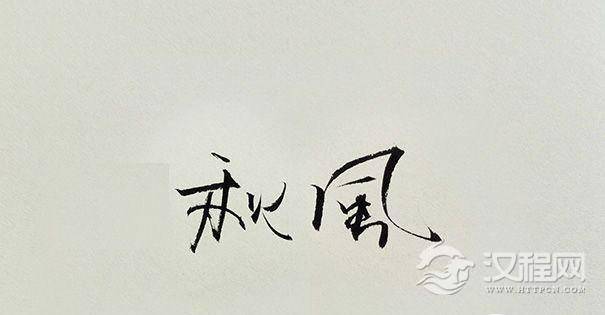 秋風
汉程网
WWW.HTTPCN.COM